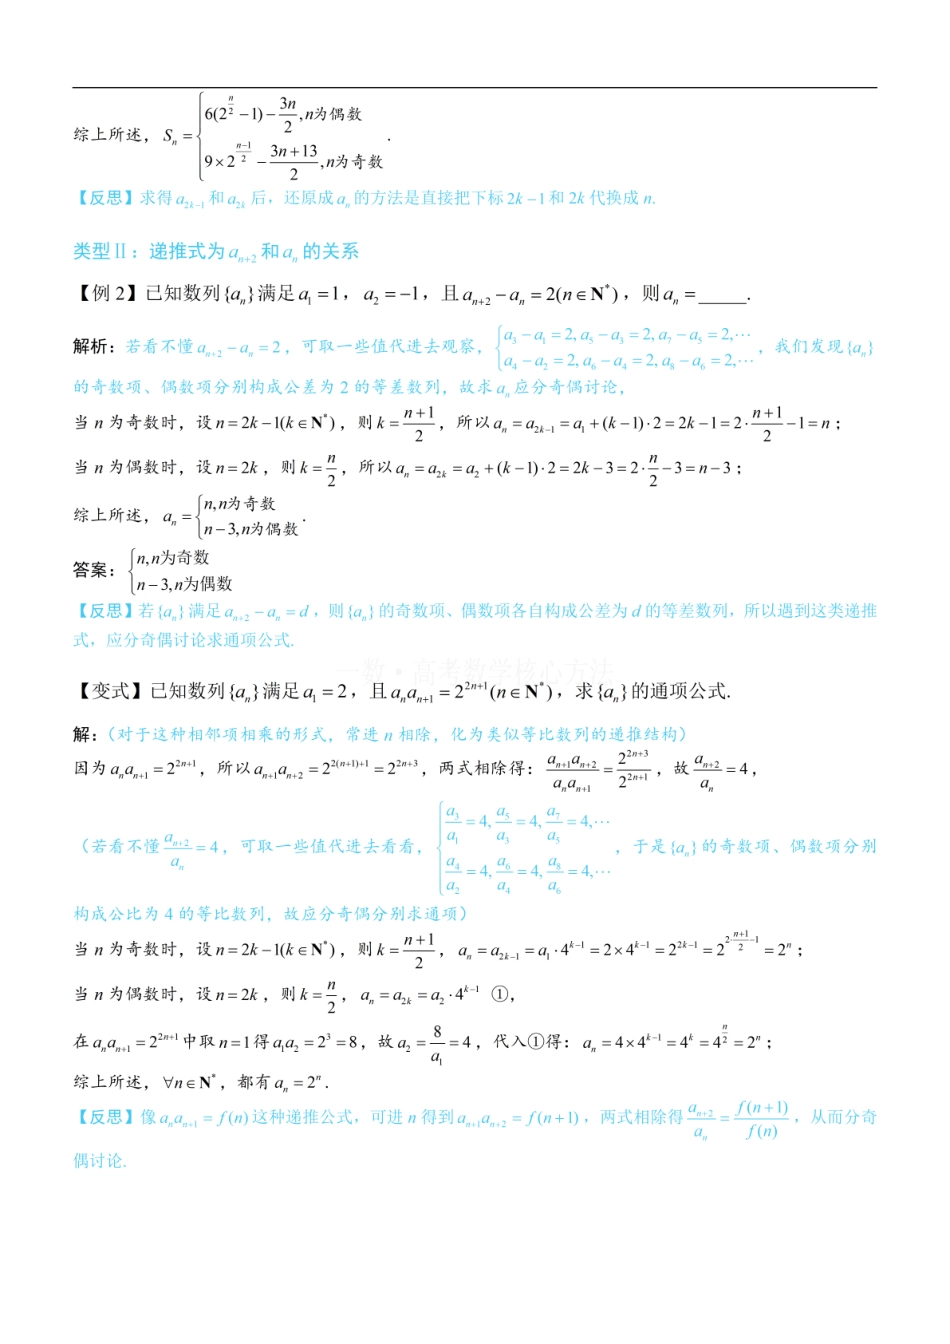 综上所述，Sₙ = { 6(2^(n/2) − 1) − 3n/2, n为偶数
9×2^((n−1)/2) − (3n+13)/2, n为奇数 .
【反思】求得 a₂ₖ₋₁ 和 a₂ₖ 后，还原成 aₙ 的方法是直接把下标 2k −1 和 2k 代换成 n.
类型Ⅱ：递推式为 aₙ₊₂ 和 aₙ 的关系
【例 2】已知数列{aₙ}满足 a₁ =1，a₂ = −1，且 aₙ₊₂ − aₙ = 2(n∈N*)，则 aₙ = _____.
解析：若看不懂 aₙ₊₂ − aₙ = 2，可取一些值代进去观察，{ a₃ − a₁ = 2, a₅ − a₃ = 2, a₇ − a₅ = 2,⋯
a₄ − a₂ = 2, a₆ − a₄ = 2, a₈ − a₆ = 2,⋯ ，我们发现{aₙ}
的奇数项、偶数项分别构成公差为 2 的等差数列，故求 aₙ 应分奇偶讨论，
当 n 为奇数时，设 n = 2k −1(k∈N*)，则 k = (n+1)/2，所以 aₙ = a₂ₖ₋₁ = a₁ + (k −1)·2 = 2k −1 = 2·(n+1)/2 −1 = n；
当 n 为偶数时，设 n = 2k，则 k = n/2，所以 aₙ = a₂ₖ = a₂ + (k −1)·2 = 2k −3 = 2·n/2 −3 = n−3；
综上所述，aₙ = { n, n为奇数
n −3, n为偶数 .
答案：{ n, n为奇数
n −3, n为偶数
【反思】若{aₙ}满足 aₙ₊₂ − aₙ = d，则{aₙ}的奇数项、偶数项各自构成公差为 d 的等差数列，所以遇到这类递推
式，应分奇偶讨论求通项公式.
一数·高考数学核心方法
【变式】已知数列{aₙ}满足 a₁ = 2，且 aₙaₙ₊₁ = 2^(2n+1)(n∈N*)，求{aₙ}的通项公式.
解：（对于这种相邻项相乘的形式，常进 n 相除，化为类似等比数列的递推结构）
因为 aₙaₙ₊₁ = 2^(2n+1)，所以 aₙ₊₁aₙ₊₂ = 2^(2(n+1)+1) = 2^(2n+3)，两式相除得：(aₙ₊₁aₙ₊₂)/(aₙaₙ₊₁) = 2^(2n+3)/2^(2n+1)，故 aₙ₊₂/aₙ = 4，
（若看不懂 aₙ₊₂/aₙ = 4，可取一些值代进去看看，{ a₃/a₁ = 4, a₅/a₃ = 4, a₇/a₅ = 4,⋯
a₄/a₂ = 4, a₆/a₄ = 4, a₈/a₆ = 4,⋯ ，于是{aₙ}的奇数项、偶数项分别
构成公比为 4 的等比数列，故应分奇偶分别求通项）
当 n 为奇数时，设 n = 2k −1(k∈N*)，则 k = (n+1)/2，aₙ = a₂ₖ₋₁ = a₁·4^(k−1) = 2×4^(k−1) = 2^(2k−1) = 2^(2·(n+1)/2 −1) = 2ⁿ；
当 n 为偶数时，设 n = 2k，则 k = n/2，aₙ = a₂ₖ = a₂·4^(k−1) ①，
在 aₙaₙ₊₁ = 2^(2n+1) 中取 n =1 得 a₁a₂ = 2³ = 8，故 a₂ = 8/a₁ = 4，代入①得：aₙ = 4×4^(k−1) = 4^k = 4^(n/2) = 2ⁿ；
综上所述，∀n∈N*，都有 aₙ = 2ⁿ.
【反思】像 aₙaₙ₊₁ = f(n) 这种递推公式，可进 n 得到 aₙ₊₁aₙ₊₂ = f(n+1)，两式相除得 aₙ₊₂/aₙ = f(n+1)/f(n)，从而分奇
偶讨论.